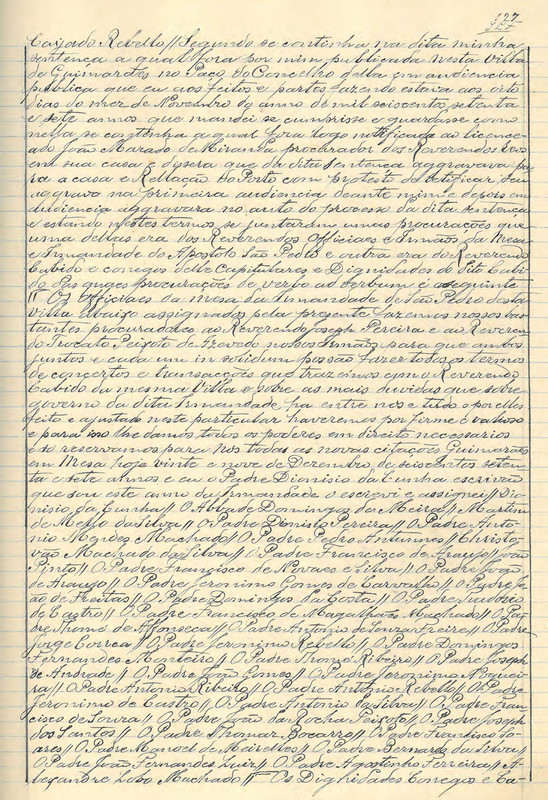 127
Caizado Rebello // Segundo se continha na dita minha
sentença a qual fora por mim publicada nesta villa
de Guimarães no Paço do Concelho della em audiencia
publica que eu aos feitos e partes fazendo estava aos oito
dias do mez de Novembro do anno de mil seiscentos setenta
e sete annos que mandei se cumprisse e guardasse como
nella se continha a qual fora logo notificada ao licence-
ado João Marado de Miranda procurador dos Reverendos
em sua casa e dissera que da dita sentença aggravava pa-
ra a casa e Rellação do Porto com protesto de retificar seu
aggravo na primeira audiencia deante mim e depois em
audiencia aggravara no auto do processo da dita sentença
e estando nestes termos se juntaram umas procurações que
uma dellas era dos Reverendos Officiaes e Irmãos da Mesa
e Irmandade do Apostolo São Pedro e outra era do Reverendo
Cabido e conegos delle Capitulares e Dignidades do dito Cabi-
do das quaes procurações de verbo ad verbum é o seguinte
// Os officiaes da mesa da Irmandade de São Pedro desta
villa abaixo assignados pela presente fazemos nossos bas-
tantes procuradores ao Reverendo Joseph Pereira e ao Reveren-
do Trocato Peixoto de Azevedo nossos Irmãos para que ambos
juntos e cada um in solidum possão fazer todos os termos
de concertos e transacções que trazemos com o Reverendo
Cabido da mesma Villa e sobre as mais duvidas que sobre
governo da dita Irmandade ha entre nos e tudo o por elles
feito e ajustado neste particular haveremos por firme e valioso
e para isso lhe damos todos os poderes em direito necessarios
e só reservamos para Nós todas as novas citações Guimarães
em Mesa hoje vinte e nove de Dezembro de seiscentos seten-
ta e sete annos e eu o Padre Dionisio da Cunha escrivão
que sou este anno da Irmandade o escrevi e assignei // Dio-
nisio da Cunha // O Abbade Domingos da Meira // Martim
de Mello da Silva // O Padre Dionisio Pereira // O Padre Anto-
nio Mendes Machado // O Padre Pedro Antunnes // Christo-
vão Machado da Silva // O Padre Francisco de Araujo // João
Pinto // O Padre Francisco de Novaes e Silva // O Padre João
de Araujo // O Padre Jeronimo Gomes de Carvalho // O Padre Jo-
ão de Freitas // O Padre Domingos da Costa // O Padre
de Castro // O Padre Francisco de Magalhães Machado // O Pa-
dre Thomé de Affonseca // O Padre Antonio de Souza Freire // O Padre
Jorge Correa // O Padre Jeronimo Rebello // O Padre Domingos
Fernandes Monteiro // O Padre Thomé Ribeiro // O Padre Joseph
de Andrade // O Padre João Gomes // O Padre Jeronimo Noguei-
ra // O Padre Antonio Ribeiro // O Padre Antonio Rebello // O Padre
Jeronimo de Castro // O Padre Antonio da Silva // O Padre Fran-
cisco de Souza // O Padre João da Rocha Peixoto // O Padre Joseph
dos Santos // O Padre Thomaz Bocarro // O Padre Francisco So-
ares // O Padre Manoel de Meirelles // O Padre Bernardo da Silva //
O Padre João Fernandes Luiz // O Padre Agostinho Ferreira // A-
lexandre Lobo Machado // Os Dignidades Conegos e Ca-